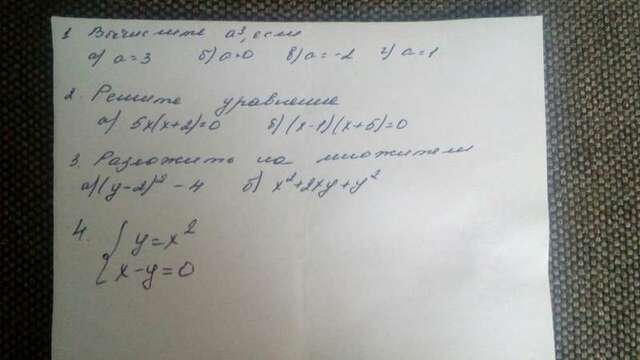 1 Вычислить a³, если
а) a=3 б) a=0 в) a=-2 г) a=1
2. Решите уравнение
а) 5x(x+2)=0 б) (x-1)(x+5)=0
3. Разложить на множители
а) (y-2)² - 4 б) x²+2xy+y²
4. { y=x²
x-y=0